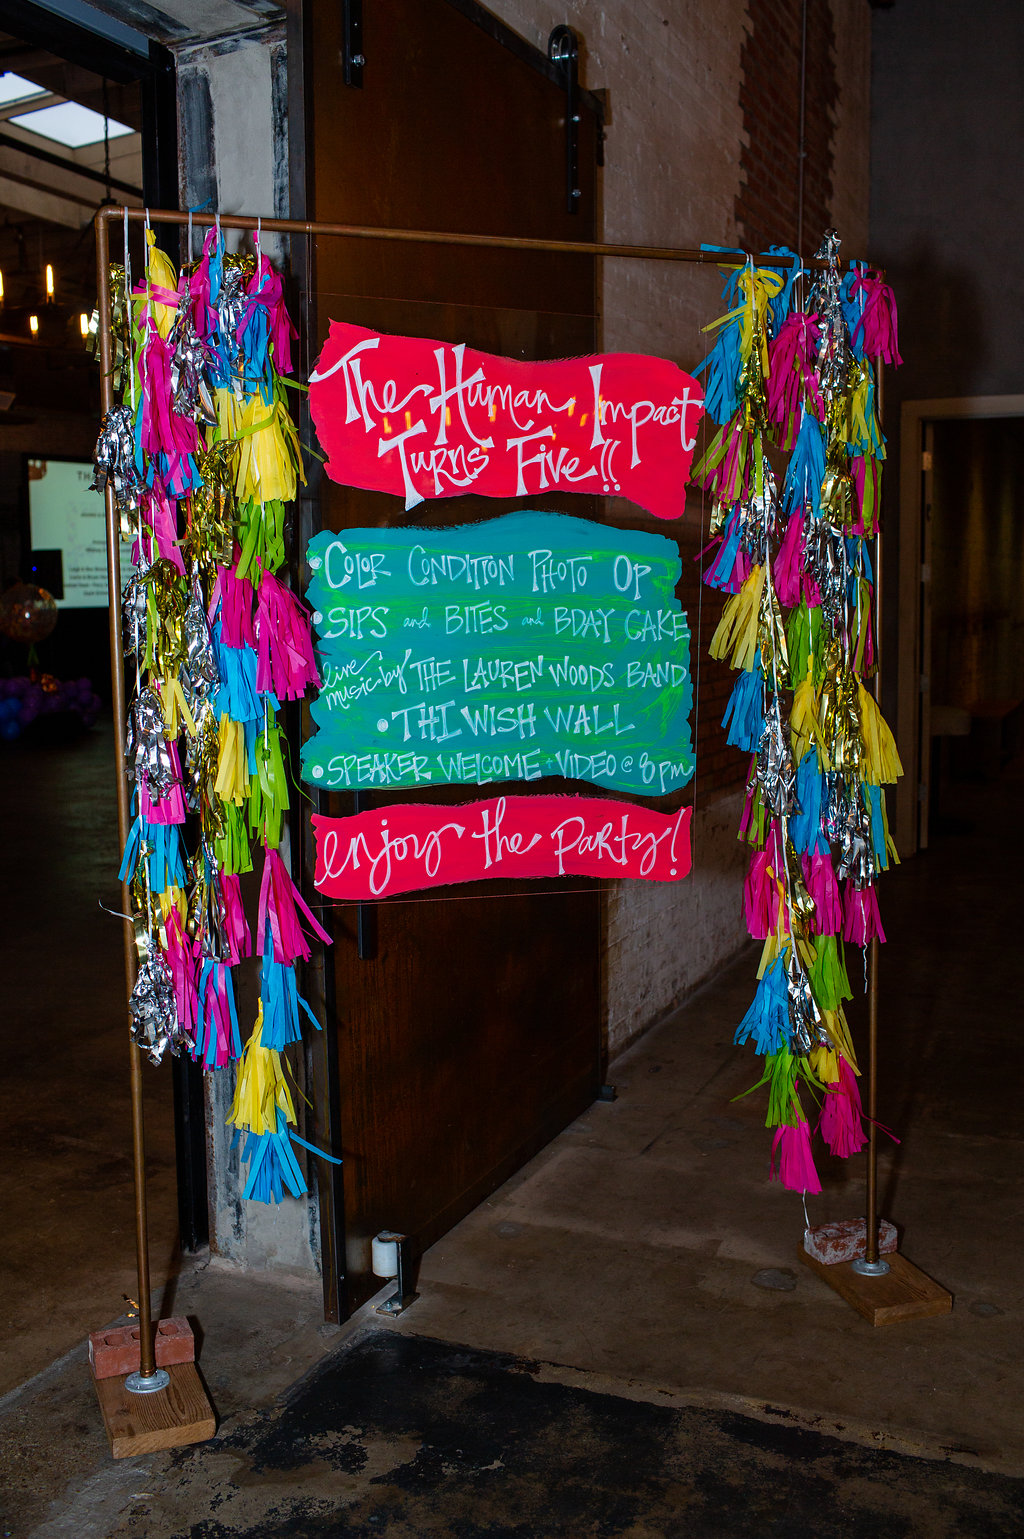 The Human Impact
Turns Five!!
• COLOR CONDITION PHOTO OP
• SIPS and BITES and BDAY CAKE
live music by THE LAUREN WOODS BAND
• THI WISH WALL
• SPEAKER WELCOME + VIDEO @ 8pm
enjoy the party!